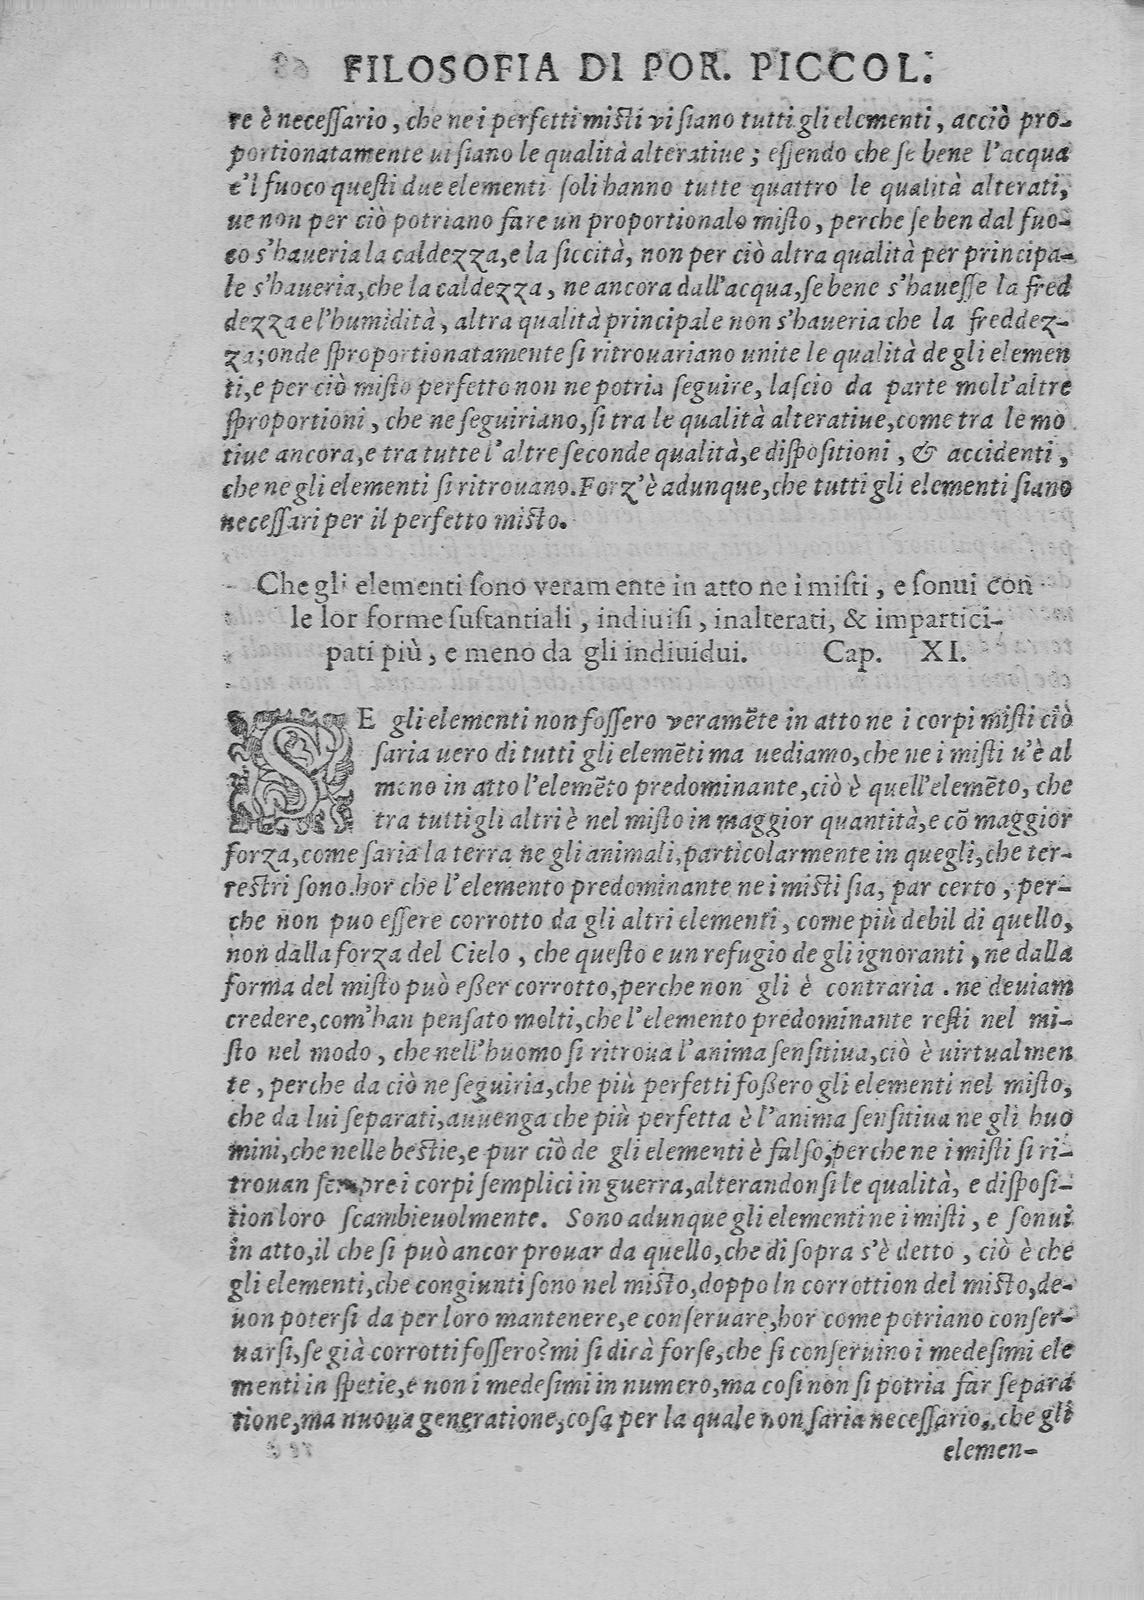 FILOSOFIA DI POR. PICCOL.
re è neceſſario, che ne i perfetti miſti vi ſiano tutti gli elementi, acciò pro-
portionatamente ui ſiano le qualità alteratiue; eſſendo che ſe bene l'acqua
e'l fuoco queſti due elementi ſoli hanno tutte quattro le qualità alterati,
ue non per ciò potriano fare un proportionale miſto, perche ſe ben dal fuo-
co s'haueria la caldezza, e la ſiccità, non per ciò altra qualità per principa-
le s'haueria, che la caldezza, ne ancora dall'acqua, ſe bene s'haueſſe la fred
dezza e l'humidità, altra qualità principale non s'haueria che la freddez-
za; onde ſproportionatamente ſi ritrouariano unite le qualità de gli elemen
ti, e per ciò miſto perfetto non ne potria ſeguire, laſcio da parte molt'altre
ſproportioni, che ne ſeguiriano, ſi tra le qualità alteratiue, come tra le mo
tiue ancora, e tra tutte l'altre ſeconde qualità, e diſpoſitioni, & accidenti,
che ne gli elementi ſi ritrouano. Forz'è adunque, che tutti gli elementi ſiano
neceſſari per il perfetto miſto.
Che gli elementi ſono veramente in atto ne i miſti, e ſonui con
le lor forme ſuſtantiali, indiuiſi, inalterati, & impartici-
pati più, e meno da gli indiuidui. Cap. XI.
SE gli elementi non foſſero veramẽte in atto ne i corpi miſti ciò
ſaria uero di tutti gli elemẽti ma uediamo, che ne i miſti u'è al
meno in atto l'elemẽto predominante, ciò è quell'elemẽto, che
tra tutti gli altri è nel miſto in maggior quantità, e cõ maggior
forza, come ſaria la terra ne gli animali, particolarmente in quegli, che ter-
reſtri ſono. hor che l'elemento predominante ne i miſti ſia, par certo, per-
che non puo eſſere corrotto da gli altri elementi, come più debil di quello,
non dalla forza del Cielo, che queſto e un refugio de gli ignoranti, ne dalla
forma del miſto può eßer corrotto, perche non gli è contraria. ne deuiam
credere, com'han penſato molti, che l'elemento predominante reſti nel mi-
ſto nel modo, che nell'huomo ſi ritroua l'anima ſenſitiua, ciò è uirtualmen
te, perche da ciò ne ſeguiria, che più perfetti foßero gli elementi nel miſto,
che da lui ſeparati, auuenga che più perfetta è l'anima ſenſitiua ne gli huo
mini, che nelle beſtie, e pur ciò de gli elementi è falſo, perche ne i miſti ſi ri-
trouan ſempre i corpi ſemplici in guerra, alterandonſi le qualità, e diſpoſi-
tion loro ſcambieuolmente. Sono adunque gli elementi ne i miſti, e ſonui
in atto, il che ſi può ancor prouar da quello, che di ſopra s'è detto, ciò è che
gli elementi, che congiunti ſono nel miſto, doppo ln corrottion del miſto, de-
uon poterſi da per loro mantenere, e conſeruare, hor come potriano conſer-
uarſi, ſe già corrotti foſſero? mi ſi dirà forſe, che ſi conſeruino i medeſimi ele
menti in ſpetie, e non i medeſimi in numero, ma coſi non ſi potria far ſepara
tione, ma nuoua generatione, coſa per la quale non ſaria neceſſario, che gli
elemen-